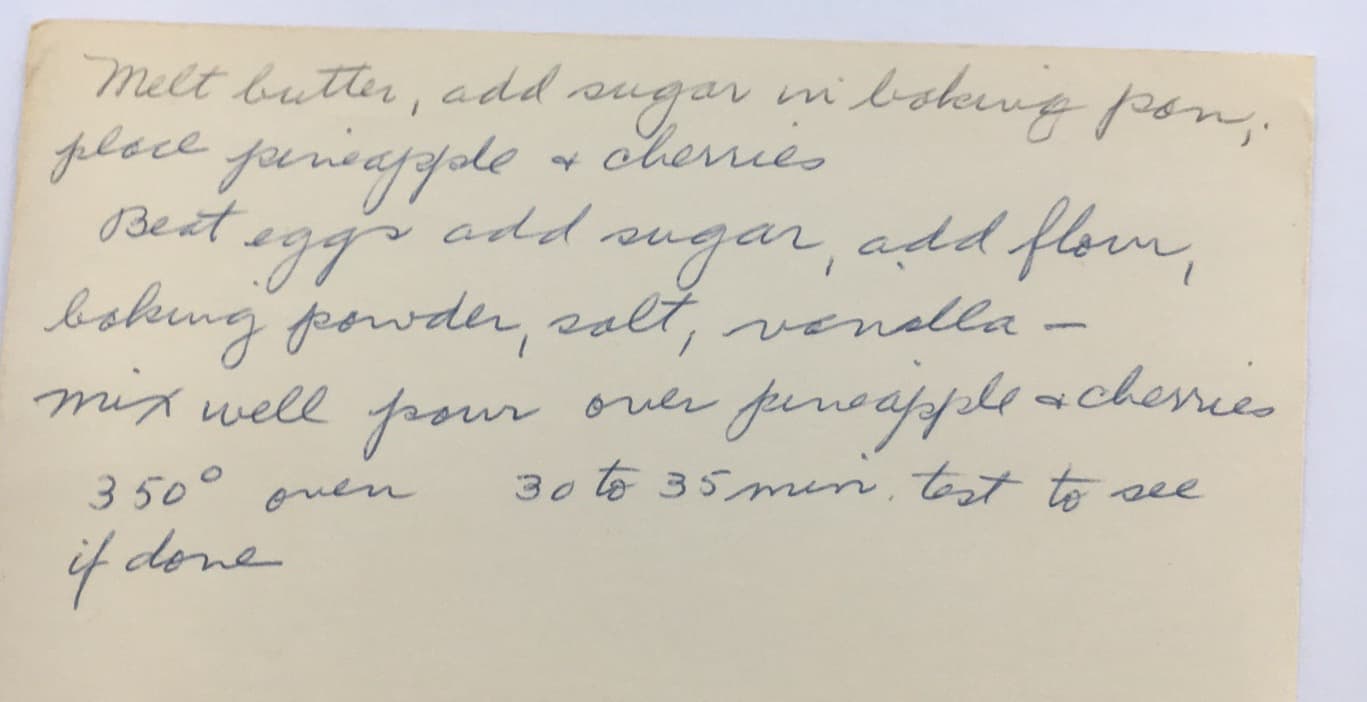 Melt butter, add sugar in baking pan;
place pineapple & cherries
Beat eggs add sugar, add flour,
baking powder, salt, vanilla –
mix well pour over pineapple & cherries
350° oven 30 to 35 min. test to see
if done